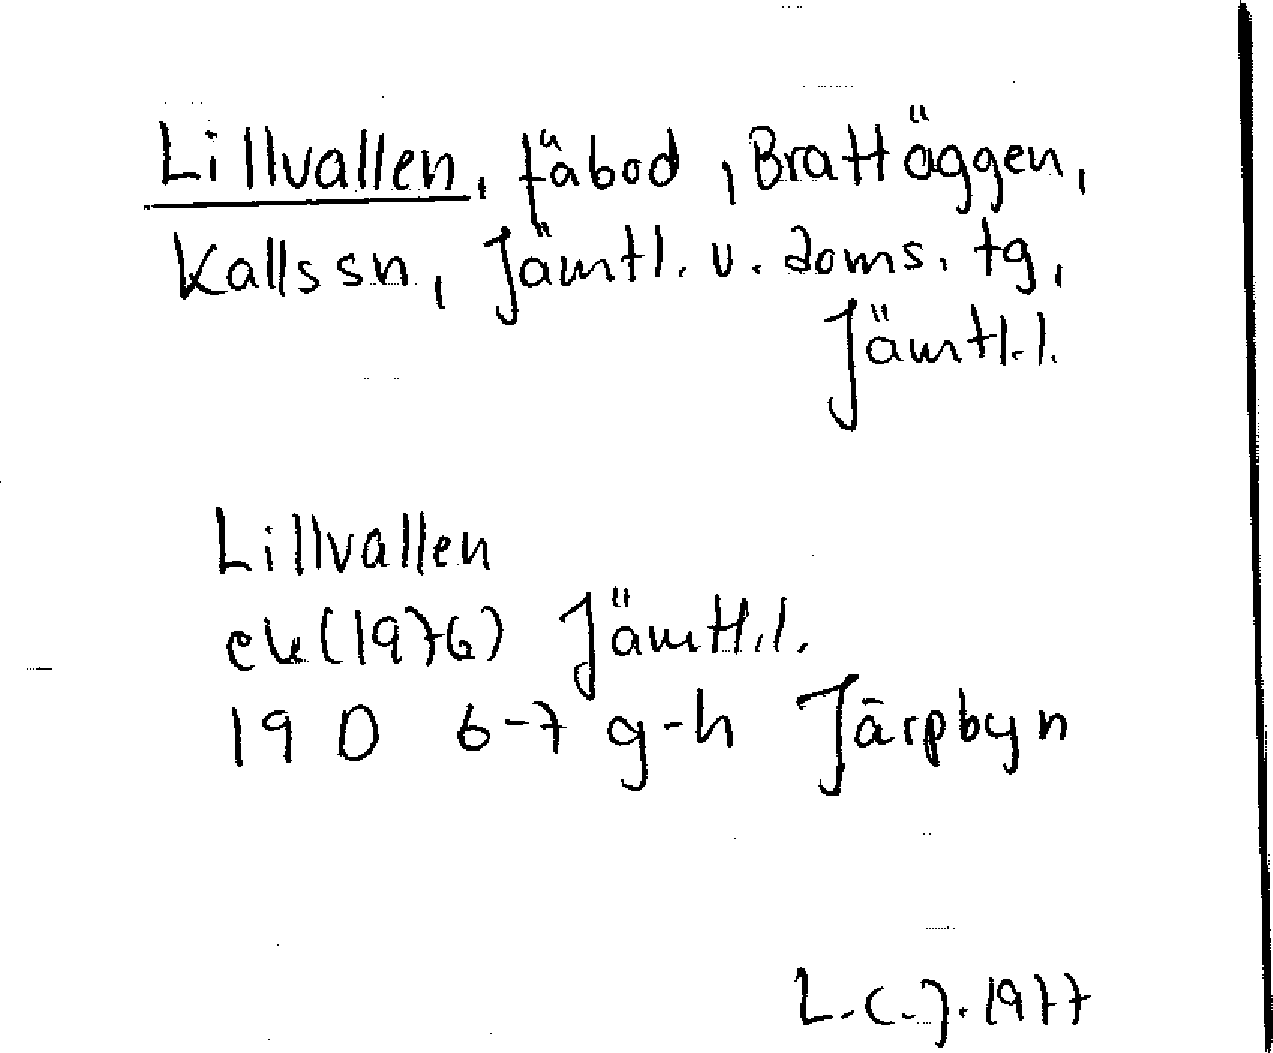 Lillvallen, fäbod, Brattäggen,
Kalls sn, Jämtl. v. doms. tg,
Jämtl.l.
Lillvallen
ek (1976) Jämtl.l.
19 D 6-7 g-h Järpbyn
L.C.J. 1977